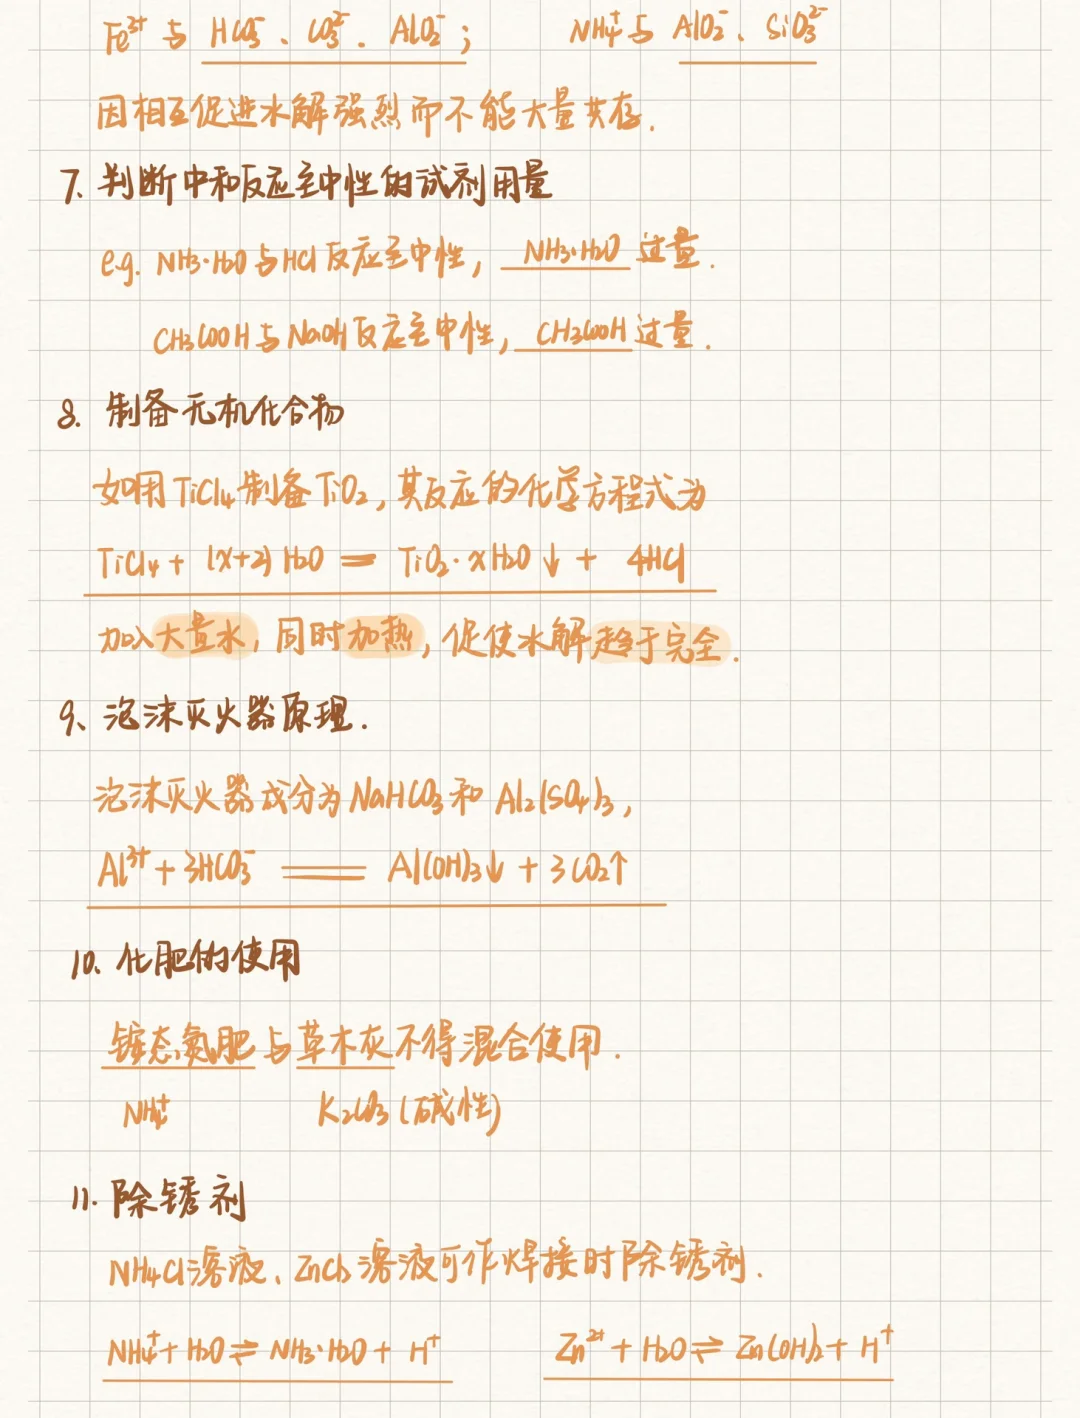 Fe³⁺与 HCO₃⁻、CO₃²⁻、AlO₂⁻; NH₄⁺与 AlO₂⁻、SiO₃²⁻
因相互促进水解强烈而不能大量共存.
7、判断中和反应至中性的试剂用量
e.g. NH₃·H₂O与HCl反应至中性, NH₃·H₂O 过量.
CH₃COOH与NaOH反应至中性, CH₃COOH过量.
8. 制备无机化合物
如用TiCl₄制备TiO₂,其反应的化学方程式为
TiCl₄ + (x+2)H₂O = TiO₂·xH₂O↓ + 4HCl
加入大量水,同时加热,促使水解趋于完全.
9、泡沫灭火器原理.
泡沫灭火器成分为NaHCO₃和 Al₂(SO₄)₃,
Al³⁺ + 3HCO₃⁻ = Al(OH)₃↓ + 3CO₂↑
10、化肥的使用
铵态氮肥与草木灰不得混合使用.
NH₄⁺ K₂CO₃(碱性)
11. 除锈剂
NH₄Cl溶液、ZnCl₂溶液可作焊接时除锈剂.
NH₄⁺ + H₂O ⇌ NH₃·H₂O + H⁺ Zn²⁺ + H₂O ⇌ Zn(OH)₂ + H⁺